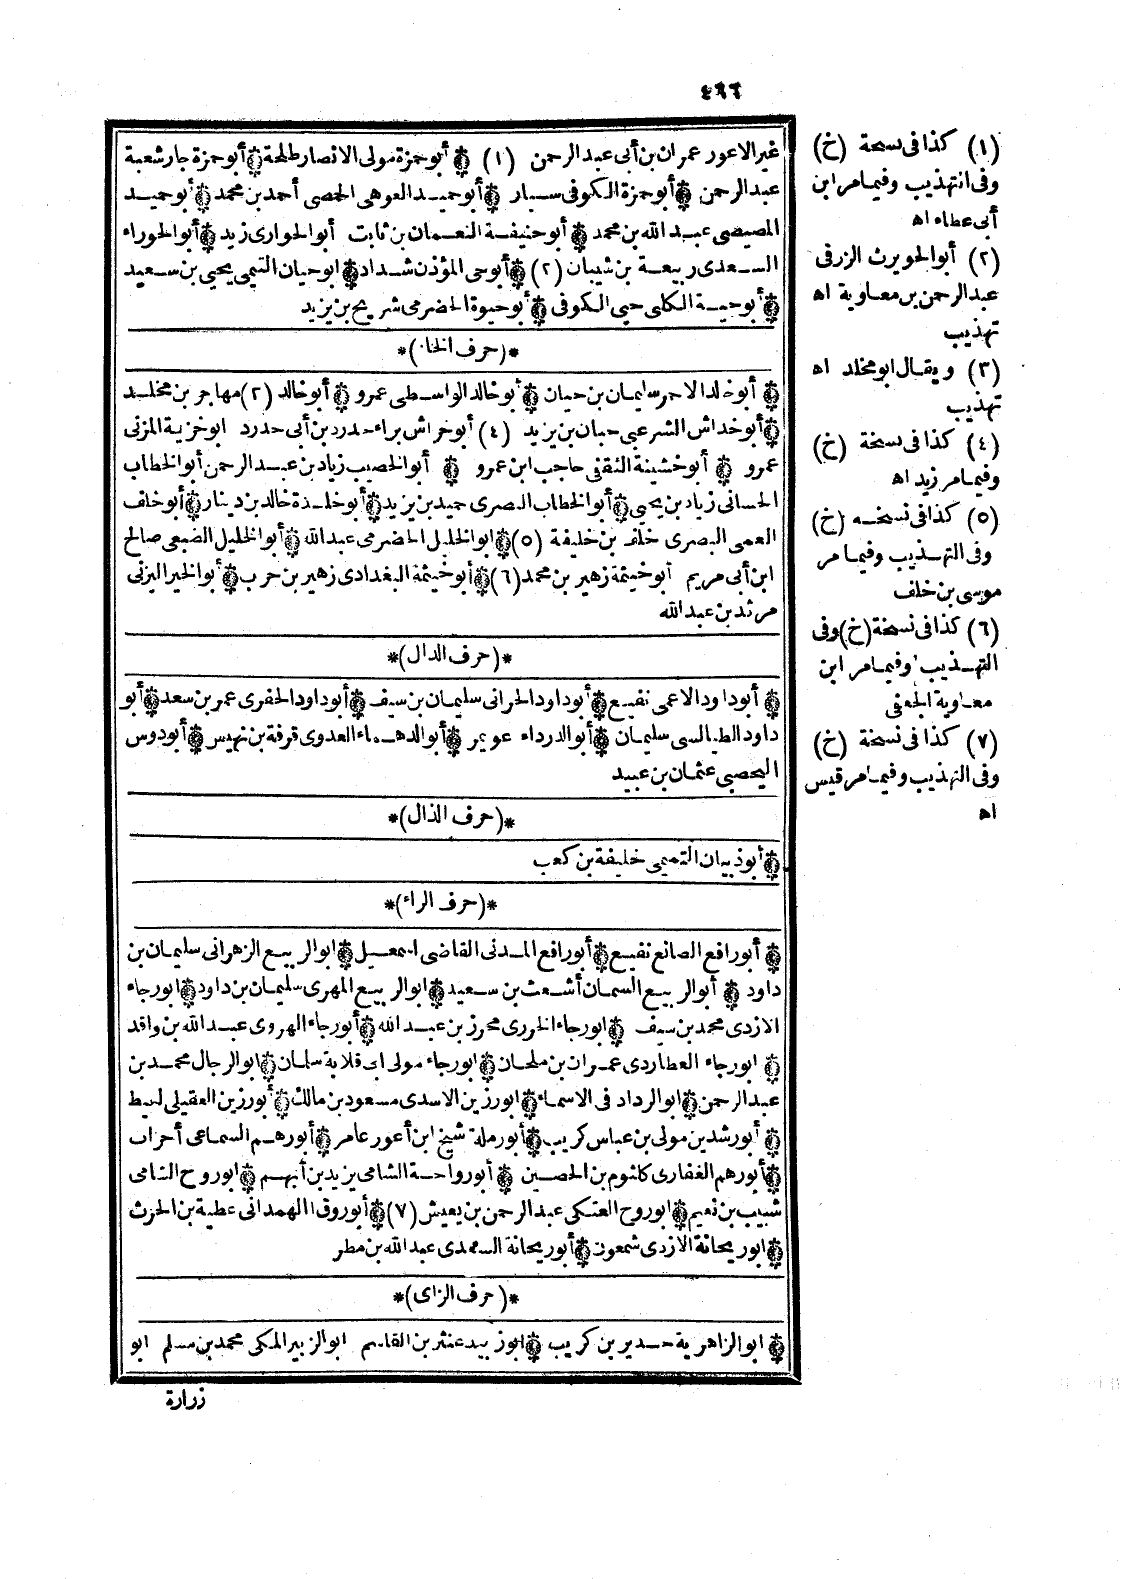 ٤٦٦
غير الاعور عمران بن أبى عبد الرحمن (١) أبو حمزة مولى الانصار طلحة أبو حمزة جار شعبة
عبد الرحمن أبو حمزة الكوفى سيار أبو حميد العوهى الحمصى أحمد بن محمد أبو حميد
المصيصى عبد الله بن محمد أبو حنيفة النعمان بن ثابت أبو الحوارى زيد أبو الحوراء
السعدى ربيعة بن شيبان (٢) أبو حى المؤذن شداد أبو حيان التيمى يحيى بن سعيد
أبو حية الكلبى حيى الكوفى أبو حيوة الحضرمى شريح بن يزيد
*(حرف الخاء)*
أبو خالد الاحمر سليمان بن حيان أبو خالد الواسطى عمرو أبو خالد (٣) مهاجر بن مخلد
أبو خداش الشرعبى حبان بن يزيد (٤) أبو خراش براء حدرد بن أبى حدرد ابو خزيمة المزنى
عمرو أبو خشينة الثقفى حاجب ابن عمرو أبو الخصيب زياد بن عبد الرحمن أبو الخطاب
الحسانى زياد بن يحيى أبو الخطاب البصرى حميد بن يزيد أبو خلدة خالد بن دينار أبو خلف
العمى البصرى خلف بن خليفة (٥) ابو الخليل الحضرمى عبد الله أبو الخليل الضبعى صالح
ابن أبى مريم أبو خيثمة زهير بن محمد (٦) أبو خيثمة البغدادى زهير بن حرب أبو الخير اليزنى
مرثد بن عبد الله
*(حرف الدال)*
أبو داود الاعمى نفيع أبو داود الحرانى سليمان بن سيف أبو داود الحفرى عمر بن سعد أبو
داود الطيالسى سليمان أبو الدرداء عويمر أبو الدهماء العدوى قرفة بن نهيس أبو دوس
اليحصبى عثمان بن عبيد
*(حرف الذال)*
أبو ذبيان التميمى خليفة بن كعب
*(حرف الراء)*
أبو رافع الصائغ نفيع أبو رافع المدنى القاضى اسمعيل ابو الربيع الزهرانى سليمان بن
داود أبو الربيع السمان أشعث بن سعيد ابو الربيع المهرى سليمان بن داود ابو رجاء
الازدى محمد بن سيف ابو رجاء الجزرى محرز بن عبد الله أبو رجاء الهروى عبد الله بن واقد
ابو رجاء العطاردى عمران بن ملحان ابو رجاء مولى ابى قلابة سلمان ابو الرجال محمد بن
عبد الرحمن ابو الرداد فى الاسماء ابو رزين الاسدى مسعود بن مالك أبو رزين العقيلى لقيط
أبو رشدين مولى بن عباس كريب أبو رملة شيخ ابن أعور عامر أبو رهم السماعى أحزاب
أبو رهم الغفارى كلثوم بن الحصين أبو رواحة الشامى يزيد بن أيهم ابو روح الشامى
شبيب بن نعيم ابو روح العتكى عبد الرحمن بن يعيش (٧) أبو روق الهمدانى عطية بن الحرث
ابو ريحانة الازدى شمعون أبو ريحانة السعدى عبد الله بن مطر
*(حرف الزاى)*
ابو الزاهرية حدير بن كريب ابو زبيد عنثر بن القاسم ابو الزبير المكى محمد بن مسلم ابو
زرارة
(١) كذا فى نسخة (خ)
وفى التهذيب وفيما مر ابن
أبى عطاء اه
(٢) أبو الحويرث الزرقى
عبد الرحمن بن معاوية اه
تهذيب
(٣) ويقال ابو مخلد اه
تهذيب
(٤) كذا فى نسخة (خ)
وفيما مر زيد اه
(٥) كذا فى نسخه (خ)
وفى التهذيب وفيما مر
موسى بن خلف
(٦) كذا فى نسخة (خ) وفى
التهذيب وفيما مر ابن
معاوية الجعفى
(٧) كذا فى نسخة (خ)
وفى التهذيب وفيما مر قيس
اه